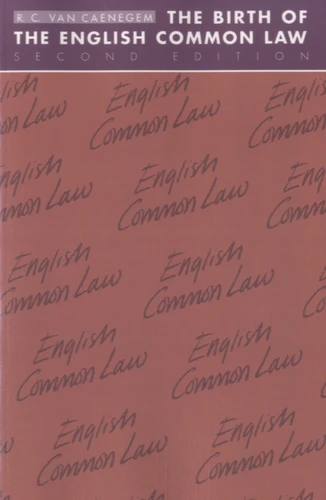 R. C. VAN CAENEGEM THE BIRTH OF
THE ENGLISH COMMON LAW
SECOND EDITION
English
Common Law
English
Common Law
English
Common Law
English
Common Law
English
Common Law
English
Common Law
English
Common Law
English
Common Law
English
Common Law
English
Common Law
English
Common Law
English